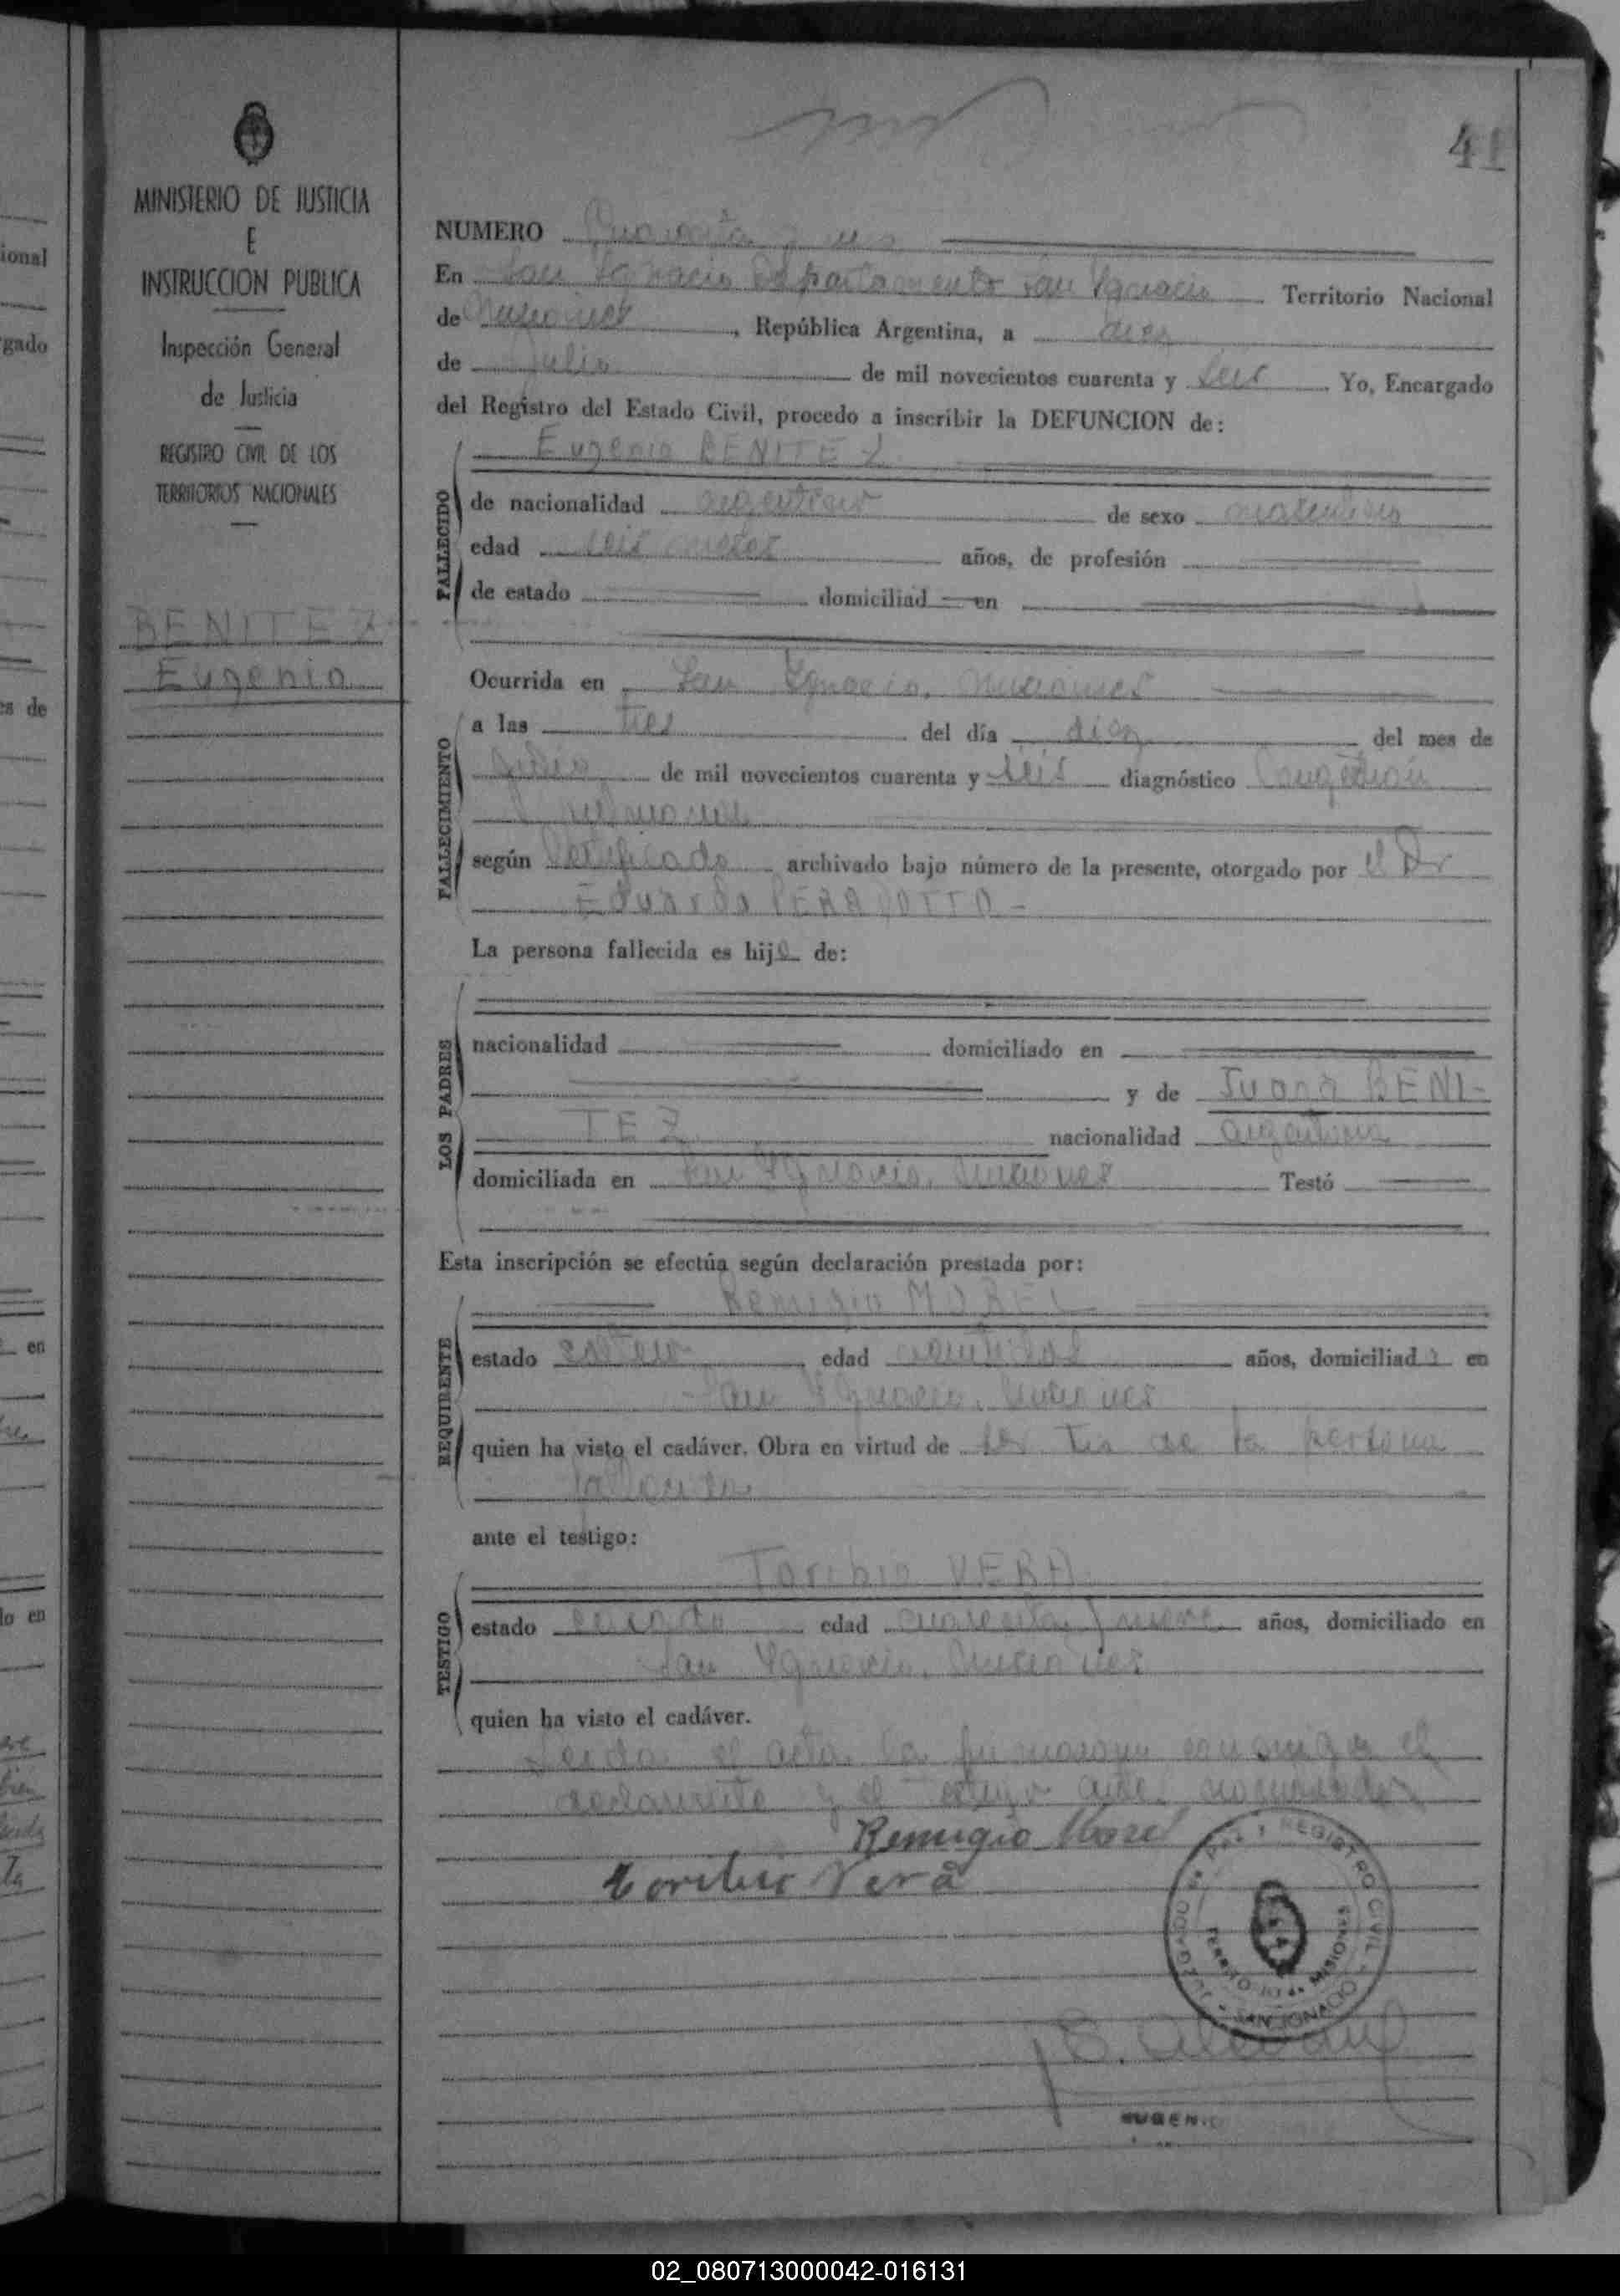 41
MINISTERIO DE JUSTICIA
E
INSTRUCCION PUBLICA
Inspección General
de Justicia
REGISTRO CIVIL DE LOS
TERRITORIOS NACIONALES
BENITEZ
Eugenio
NUMERO Cuarenta y uno
En San Ignacio Departamento San Ignacio Territorio Nacional
de Misiones, República Argentina, a diez
de Julio de mil novecientos cuarenta y seis Yo, Encargado
del Registro del Estado Civil, procedo a inscribir la DEFUNCION de:
Eugenio BENITEZ
FALLECIDO
de nacionalidad argentino de sexo masculino
edad seis meses años, de profesión
de estado domiciliad en
Ocurrida en San Ignacio, Misiones
FALLECIMIENTO
a las tres del día diez del mes de
Julio de mil novecientos cuarenta y seis diagnóstico Congestión
pulmonar
según Certificado archivado bajo número de la presente, otorgado por el Dr
Eduardo
La persona fallecida es hijo de:
LOS PADRES
nacionalidad domiciliado en
y de Juana BENI-
TEZ nacionalidad argentina
domiciliada en San Ignacio, Misiones Testó
Esta inscripción se efectúa según declaración prestada por:
Remigio MOREL
REQUIRENTE
estado soltero edad veintidos años, domiciliado en
San Ignacio, Misiones
quien ha visto el cadáver. Obra en virtud de ser tio de la persona
fallecida
ante el testigo:
Toribio VERA
TESTIGO
estado casado edad cuarenta y nueve años, domiciliado en
San Ignacio, Misiones
quien ha visto el cadáver.
Leida el acta la firmaron conmigo el
declarante y el testigo antes nombrados
Remigio Morel
Toribio Vera
JUZGADO DE PAZ Y REGISTRO CIVIL
TERRITORIO DE MISIONES
SAN IGNACIO
EUGENIO
02_080713000042-016131